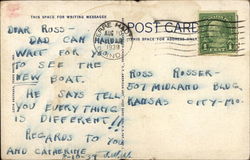 THIS SPACE FOR WRITING MESSAGES
POST CARD
THIS SPACE FOR ADDRESS ONLY
AUG 10
1939
1
DEAR ROSS-
DAD CAN HARDLY
WAIT FOR YOU
TO SEE THE
NEW BOAT.
HE SAYS TELL
YOU EVERYTHING
IS DIFFERENT!!
REGARDS TO YOU
AND CATHERINE
8-10-39
ROSS ROSSER-
507 MIDLAND BLDG.
KANSAS CITY-MO.